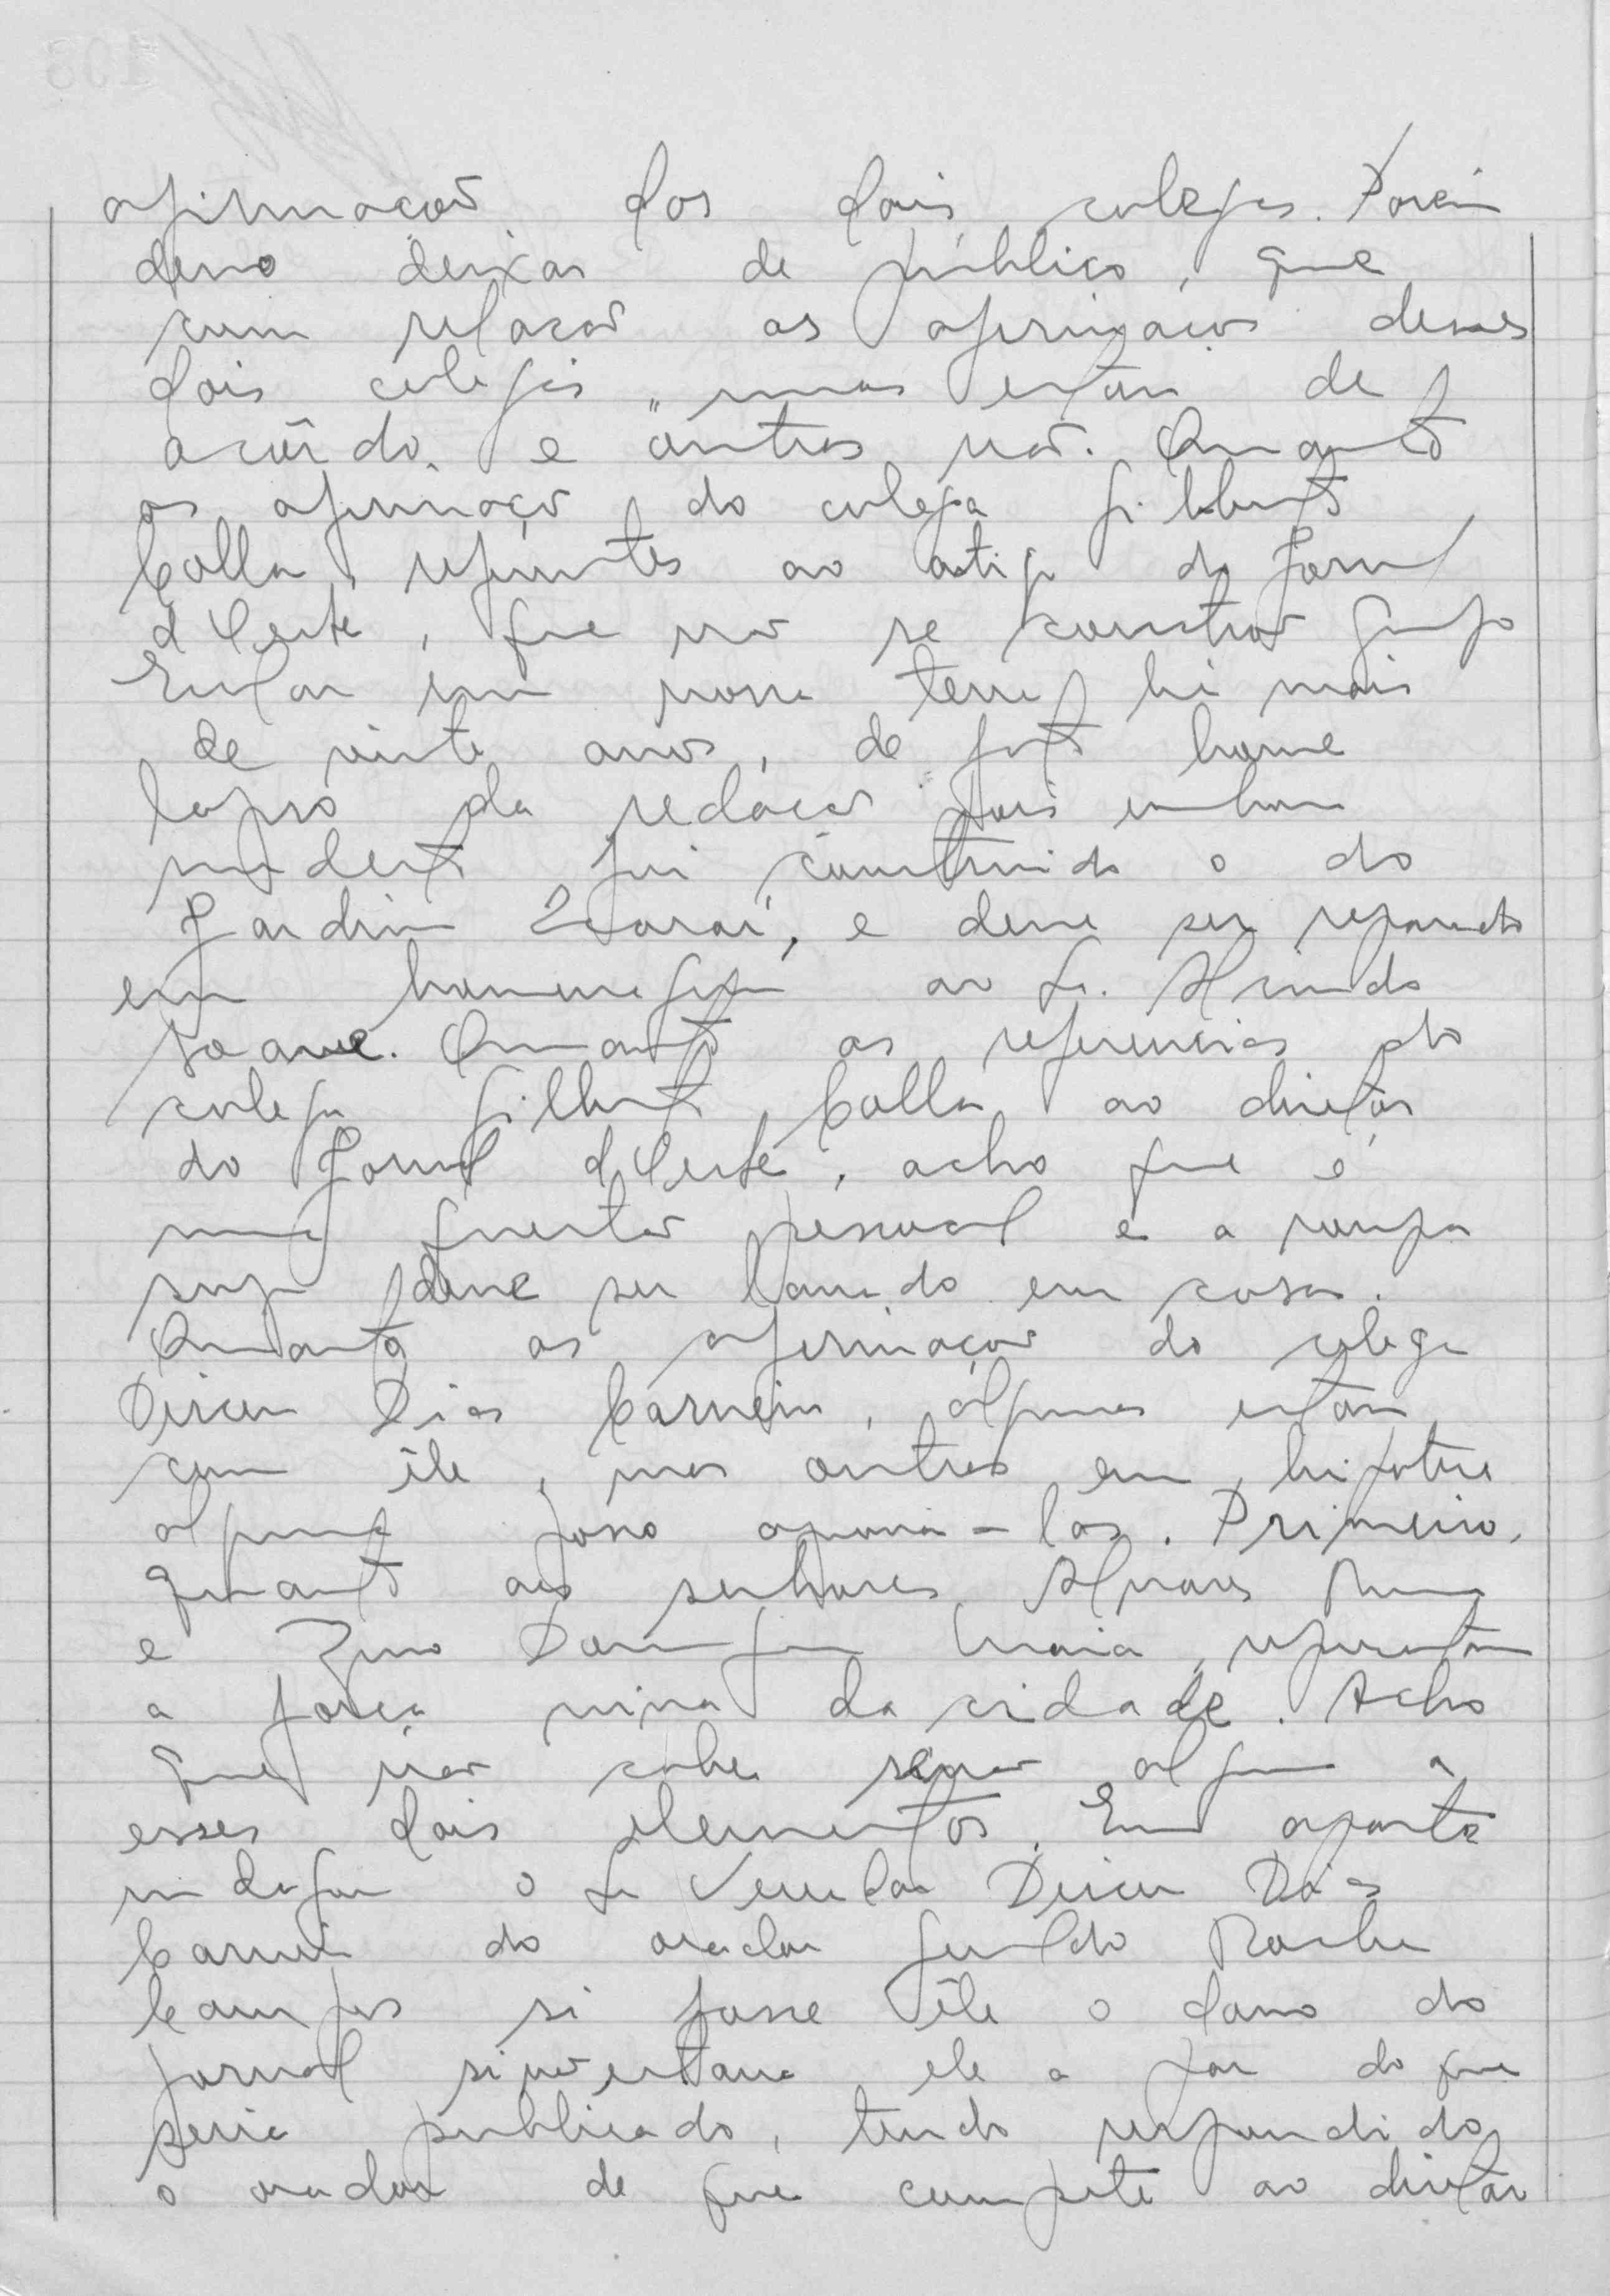 afirmação dos dois colegas. Porém
devo deixar de público, que
com relação as afirmações desses
dois colegas, umas estão de
acôrdo, e outras não. Quanto
as afirmações do colega Gilberto
Colla, referentes ao artigo do Jornal
d'Oeste, que não se constroe Grupo
Escolar em nossa terra há mais
de vinte anos, de fato houve
lapso da redação pois embora
modesto foi construido o do
Jardim Icaraí, e deve ser reparado
em homenagem ao Sr. Arlindo
Soave. Quanto as referencias do
colega Gilberto Colla ao diretôr
do Jornal d'Oeste, acho que é
uma questão pessoal e a roupa
suja deve ser lavado em casa.
Quanto as afirmações do colega
Dirceu Dias Carneiro, algumas estão
com êle, mas outras em hipotese
alguma posso apoia-las. Primeiro,
quanto aos senhores
e Zeno Maia, representam
a força viva da cidade. Acho
que não cabe senão algum a
esses dois elementos. Em aparte
indagou o Sr Vereador Dirceu Dias
Carneiro do orador Geraldo Rocha
Campos si fosse êle o dono do
jornal si não estava ele a par do que
seria publicado, tendo respondido
o orador de que compete ao diretôr